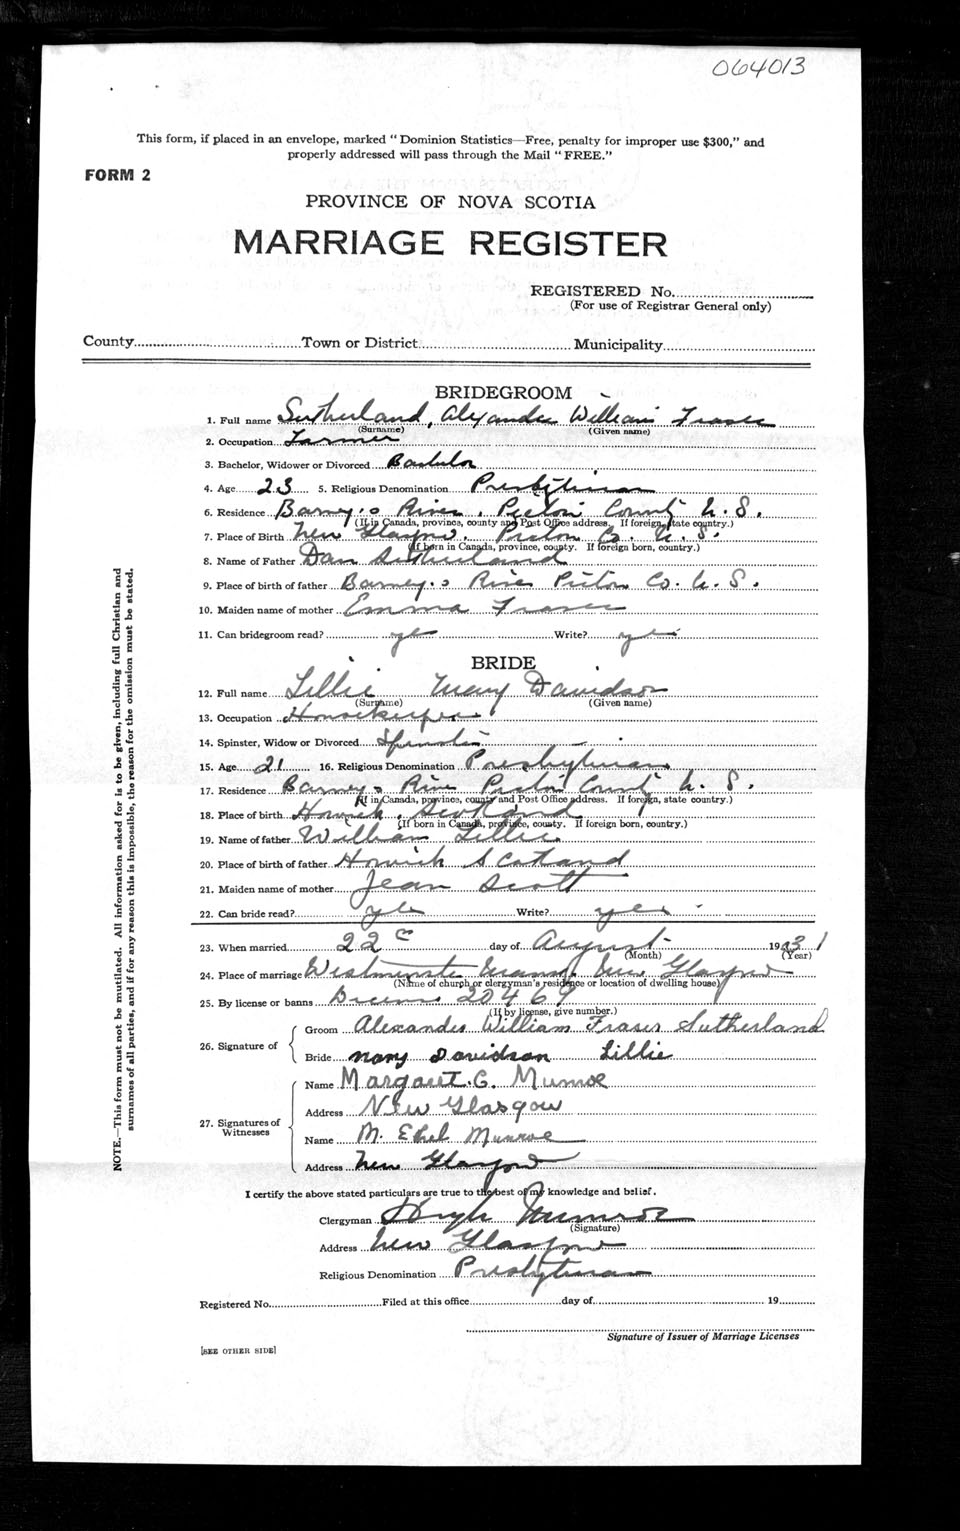 064013
This form, if placed in an envelope, marked "Dominion Statistics—Free, penalty for improper use $300," and
properly addressed will pass through the Mail "FREE."
FORM 2
PROVINCE OF NOVA SCOTIA
MARRIAGE REGISTER
REGISTERED No.
(For use of Registrar General only)
County Town or District Municipality
BRIDEGROOM
1. Full name Sutherland, Alexander William Fraser
(Surname) (Given name)
2. Occupation Farmer
3. Bachelor, Widower or Divorced Bachelor
4. Age 23 5. Religious Denomination Presbyterian
6. Residence Barney's River, Pictou County N.S.
(If in Canada, province, county and Post Office address. If foreign, state country.)
7. Place of Birth New Glasgow, Pictou Co. N.S.
(If born in Canada, province, county. If foreign born, country.)
8. Name of Father Dan Sutherland
9. Place of birth of father Barney's River Pictou Co. N.S.
10. Maiden name of mother Emma Fraser
11. Can bridegroom read? yes Write? yes
BRIDE
12. Full name Lillie Mary Davidson
(Surname) (Given name)
13. Occupation Housekeeper
14. Spinster, Widow or Divorced Spinster
15. Age 21 16. Religious Denomination Presbyterian
17. Residence Barney's River Pictou County N.S.
(If in Canada, province, county and Post Office address. If foreign, state country.)
18. Place of birth Howick, Scotland
(If born in Canada, province, county. If foreign born, country.)
19. Name of father William Lillie
20. Place of birth of father Howick Scotland
21. Maiden name of mother Jean Scott
22. Can bride read? yes Write? yes
23. When married 22 day of August 1931
(Month) (Year)
24. Place of marriage Westminster Manse, New Glasgow
(Name of church or clergyman's residence or location of dwelling house)
25. By license or banns 20469
(If by license, give number.)
26. Signature of
Groom Alexander William Fraser Sutherland
Bride Mary Davidson Lillie
27. Signatures of Witnesses
Name Margaret. C. Munroe
Address New Glasgow
Name M. Ethel Munroe
Address New Glasgow
I certify the above stated particulars are true to the best of my knowledge and belief.
Clergyman Hugh Munroe
(Signature)
Address New Glasgow
Religious Denomination Presbyterian
Registered No. Filed at this office day of 19
Signature of Issuer of Marriage Licenses
[SEE OTHER SIDE]
NOTE.—This form must not be mutilated. All information asked for is to be given, including full Christian and
surnames of all parties, and if for any reason this is impossible, the reason for the omission must be stated.